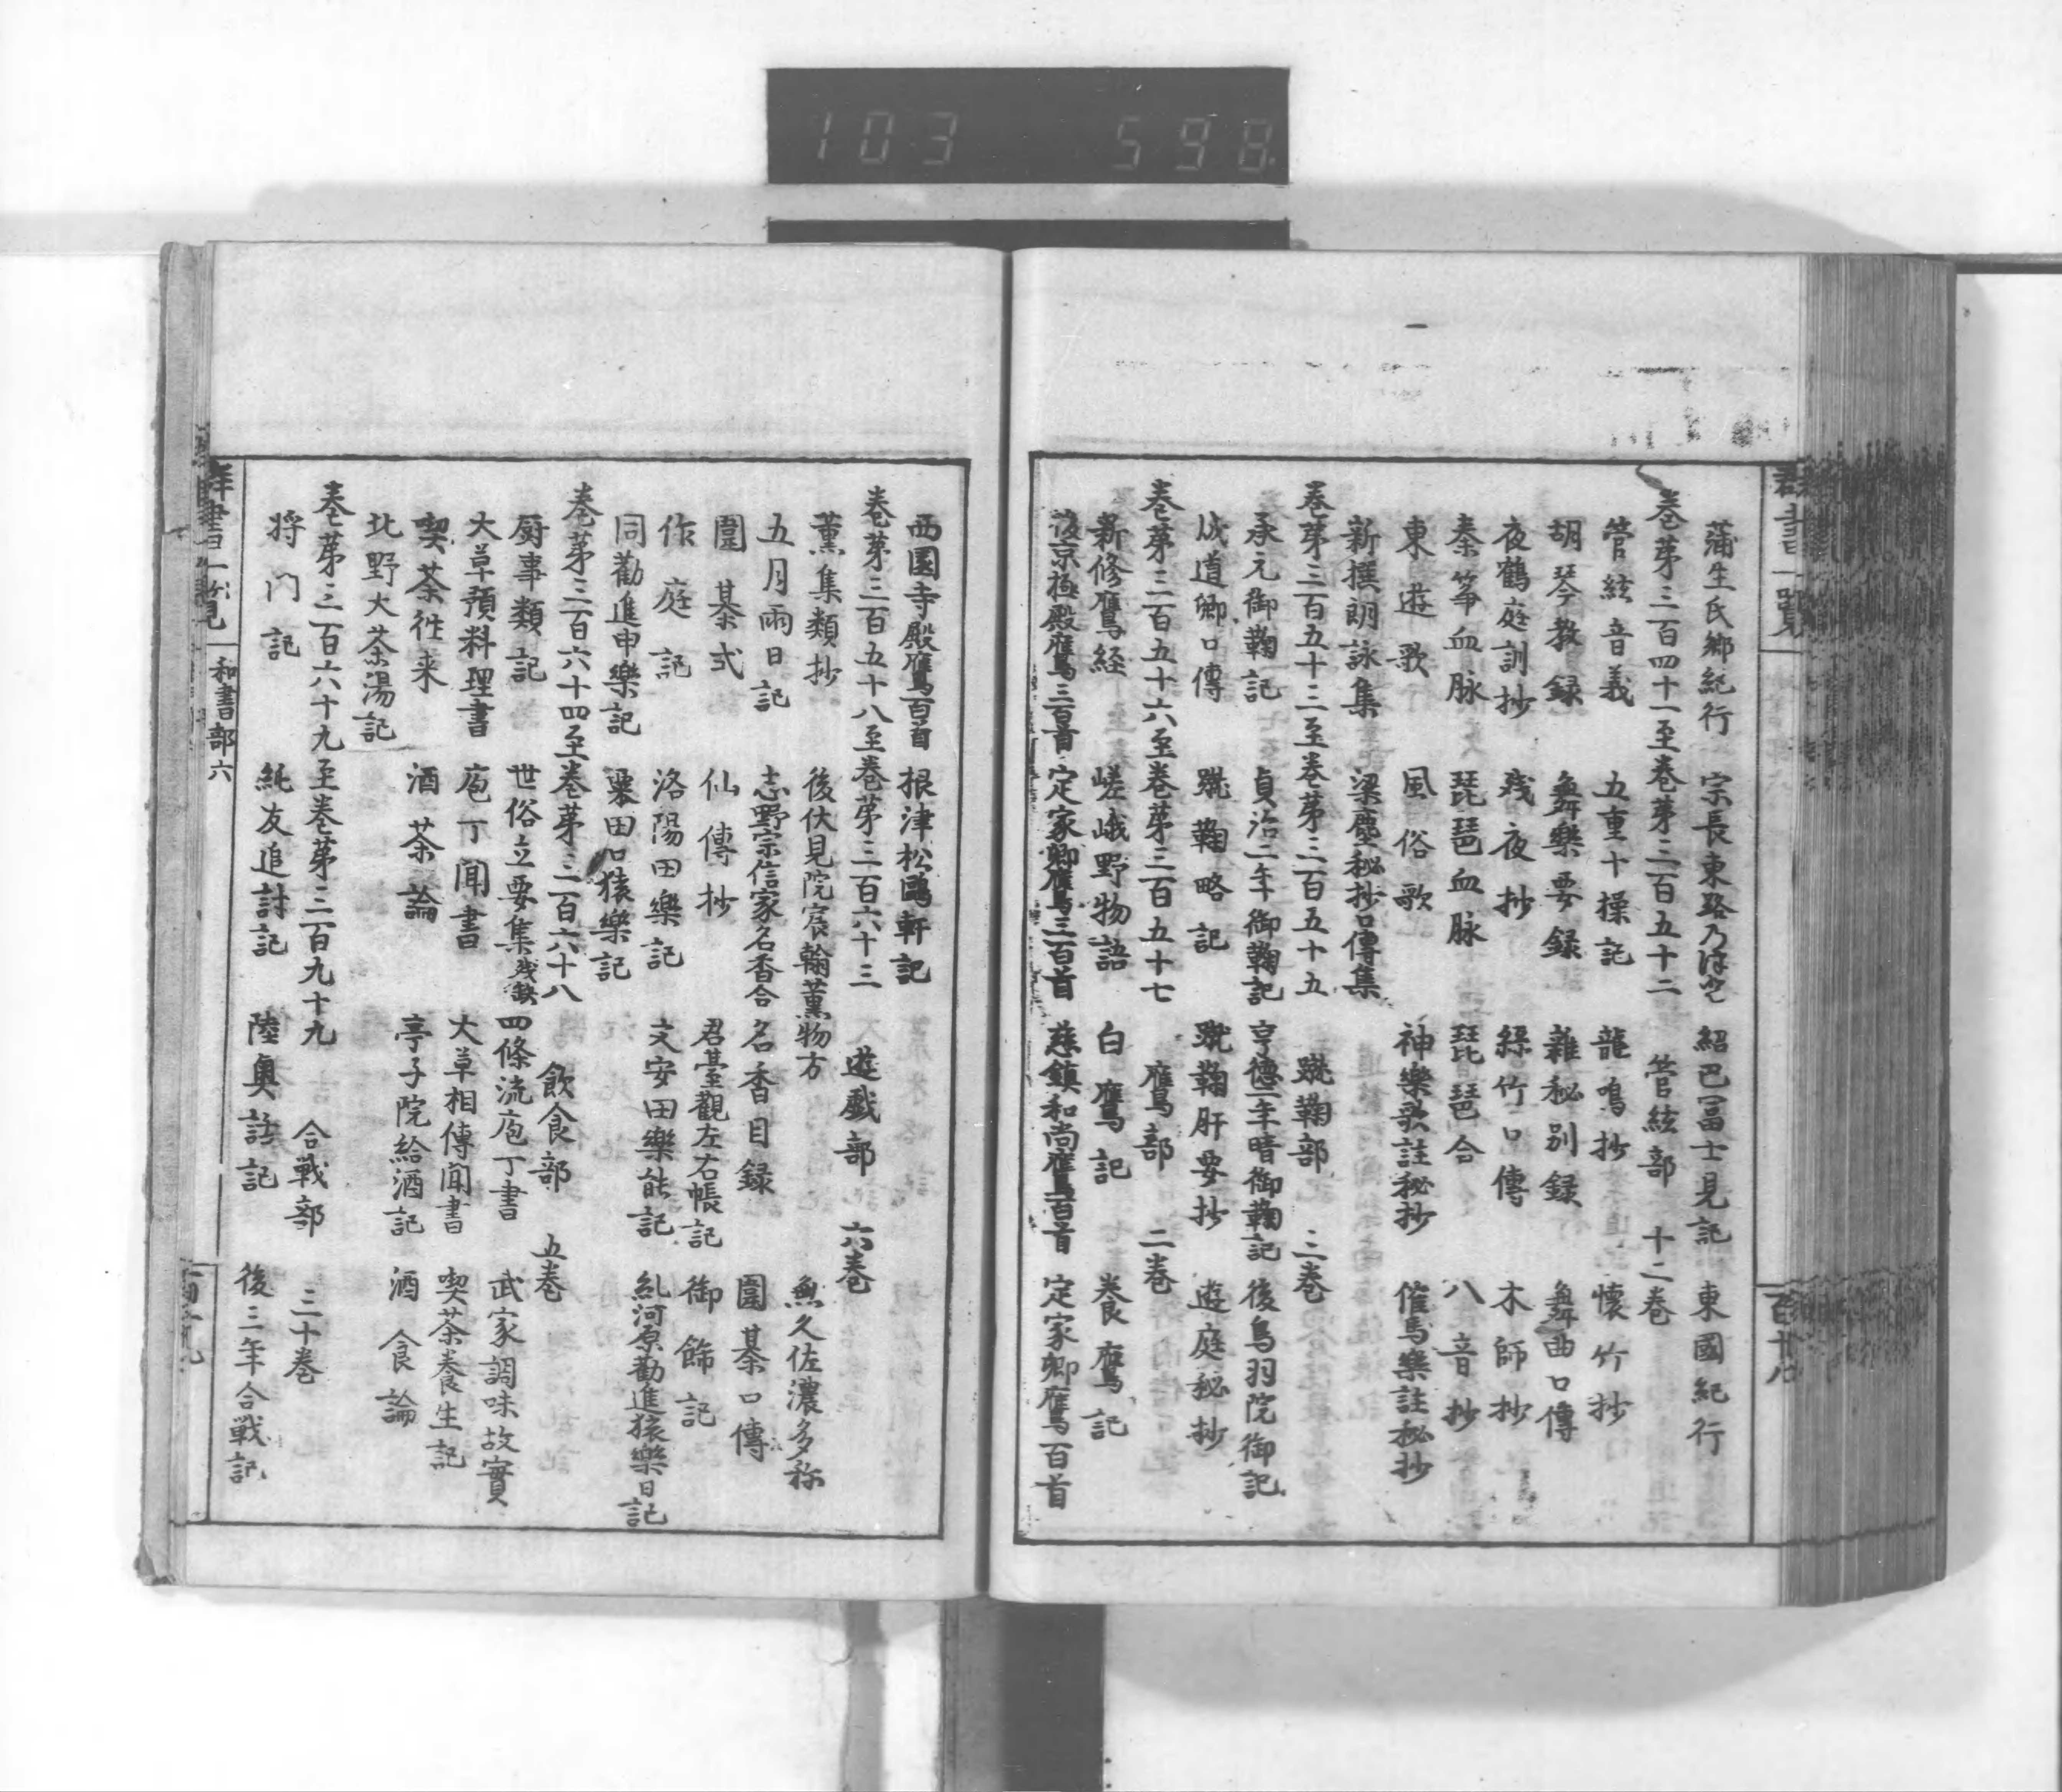 103 598
群書一覽
百廿八
蒲生氏郷紀行 宗長東路乃津登 紹巴冨士見記 東國紀行
巻第三百四十一至巻第三百五十二 管絃部 十二巻
管絃音義 五重十操記 龍鳴抄 懷竹抄
胡琴教録 舞樂要録 雜秘別録 舞曲口傳
夜鶴庭訓抄 残夜抄 絲竹口傳 木師抄
秦筝血脉 琵琶血脉 琵琶合 八音抄
東遊歌 風俗歌 神樂歌註秘抄 催馬樂註秘抄
新撰朗詠集 梁塵秘抄口傳集
巻第三百五十三至巻第三百五十五 蹴鞠部 三巻
承元御鞠記 貞治二年御鞠記 亨德二年晴御鞠記 後鳥羽院御記
成道卿口傳 蹴鞠略記 蹴鞠肝要抄 遊庭秘抄
巻第三百五十六至巻第三百五十七 鷹部 二巻
新修鷹経 嵯峨野物語 白鷹記 養鷹記
後京極殿鷹三百首 定家卿鷹三百首 慈鎮和尚鷹百首 定家卿鷹百首
西園寺殿鷹百首 根津松鷗軒記
巻第三百五十八至巻第三百六十三 遊戯部 六巻
薫集類抄 後伏見院宸翰薫物方 無久佐濃多称
五月雨日記 志野宗信家名香合 名香目録 圍碁口傳
圍碁式 仙傳抄 君臺觀左右帳記 御餝記
作庭記 洛陽田樂記 文安田樂能記 糺河原勸進猿樂日記
同勸進申樂記 粟田口猿樂記
巻第三百六十四至巻第三百六十八 飲食部 五巻
厨事類記 世俗立要集残缺 四條流庖丁書 武家調味故實
大草預料理書 庖丁聞書 大草相傳聞書 喫茶養生記
喫茶徃来 酒茶論 亭子院給酒記 酒食論
北野大茶湯記
巻第三百六十九至巻第三百九十九 合戰部 三十巻
将门記 純友追討記 陸奥話記 後三年合戰記
群書一覽
和書部六